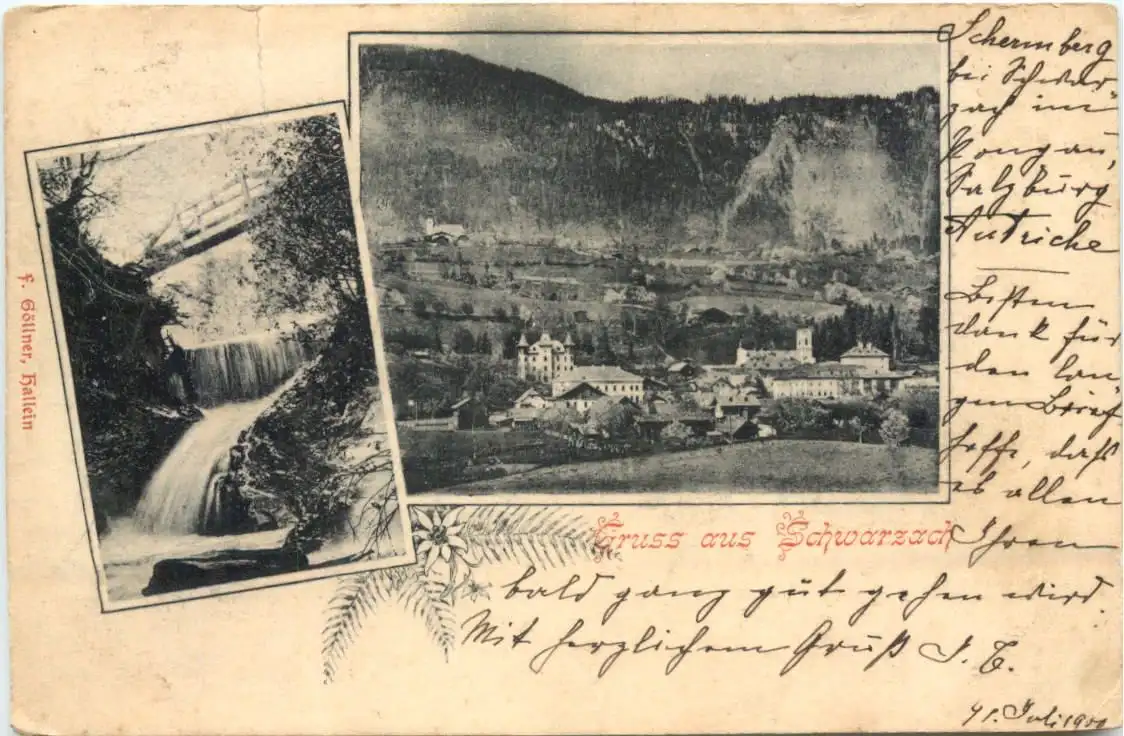 F. Göllner, Hallein
Schernberg
bei Schwar-
zach im
Pongau,
Salzburg
Autriche
Besten
dank für
den lan-
gen Brief
hoffe, daß
es allen
Ihren
Gruss aus Schwarzach
bald ganz gut gehen wird.
Mit herzlichem Gruß J. T.
Juli 1900